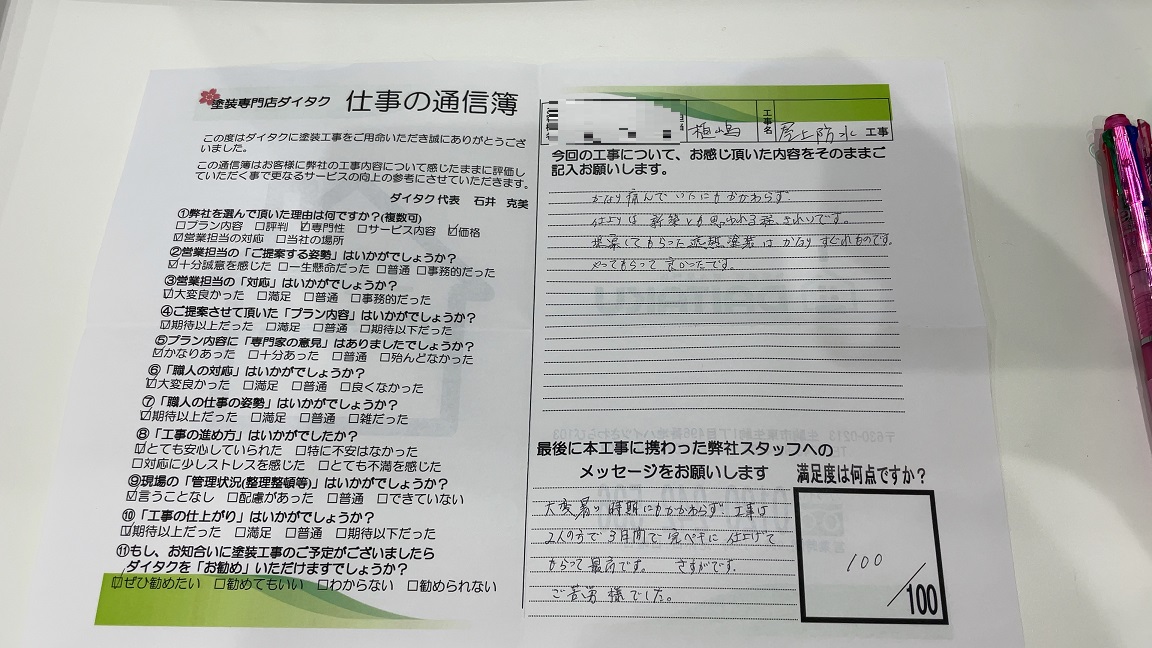 塗装専門店ダイタク 仕事の通信簿
この度はダイタクに塗装工事をご用命いただき誠にありがとうござ
いました。
この通信簿はお客様に弊社の工事内容について感じたままに評価し
ていただく事で更なるサービスの向上の参考にさせていただきます。
ダイタク代表 石井 克美
①弊社を選んで頂いた理由は何ですか?(複数可)
□プラン内容 □評判 ☑専門性 □サービス内容 ☑価格
☑営業担当の対応 □当社の場所
②営業担当の「ご提案する姿勢」はいかがでしょうか?
☑十分誠意を感じた □一生懸命だった □普通 □事務的だった
③営業担当の「対応」はいかがでしょうか?
☑大変良かった □満足 □普通 □事務的だった
④ご提案させて頂いた「プラン内容」はいかがでしょうか?
☑期待以上だった □満足 □普通 □期待以下だった
⑤プラン内容に「専門家の意見」はありましたでしょうか?
☑かなりあった □十分あった □普通 □殆んどなかった
⑥「職人の対応」はいかがでしょうか?
☑大変良かった □満足 □普通 □良くなかった
⑦「職人の仕事の姿勢」はいかがでしょうか?
☑期待以上だった □満足 □普通 □雑だった
⑧「工事の進め方」はいかがでしたか?
☑とても安心していられた □特に不安はなかった
□対応に少しストレスを感じた □とても不満を感じた
⑨現場の「管理状況(整理整頓等)」はいかがでしょうか?
☑言うことなし □配慮があった □普通 □できていない
⑩「工事の仕上がり」はいかがでしょうか?
☑期待以上だった □満足 □普通 □期待以下だった
⑪もし、お知合いに塗装工事のご予定がございましたら
ダイタクを「お勧め」いただけますでしょうか?
☑ぜひ勧めたい □勧めてもいい □わからない □勧められない
植嶋 工事名 屋上防水 工事
今回の工事について、お感じ頂いた内容をそのままご
記入お願いします。
かなり痛んでいたにもかかわらず
仕上りは新築とも思われる程、きれいです。
提案してもらった 塗装はかなりすぐれものです。
やってもらって良かったです。
最後に本工事に携わった弊社スタッフへの
メッセージをお願いします
大変暑い時期にもかかわらず 工事は
2人の方で3日間で完ペキに仕上げて
もらって最高です。 さすがです。
ご苦労様でした。
満足度は何点ですか?
100
/100